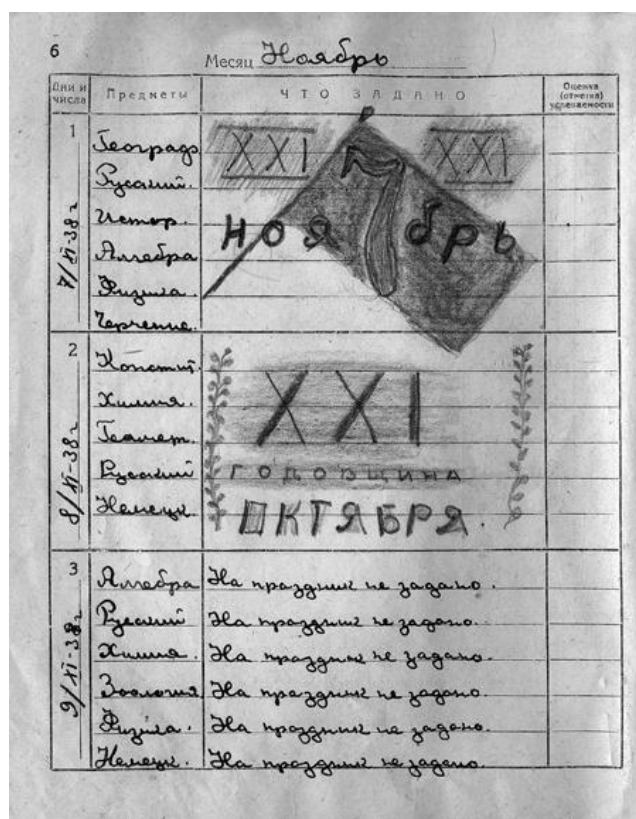 6
Месяц Ноябрь
Дни и числа Предметы ЧТО ЗАДАНО Оценка (отметка) успеваемости
1
7/XI-38 г
Географ.
XXI XXI
Русский.
7
Истор.
ноябрь
Алгебра
Физика.
Черчение.
2
8/XI-38 г
Констит.
Химия.
XXI
Геомет.
Русский
ГОДОВЩИНА
Немецк.
ОКТЯБРЯ.
3
9/XI-38 г
Алгебра На праздник не задано.
Русский На праздник не задано.
Химия. На праздник не задано.
Зоология На праздник не задано.
Физика. На праздник не задано.
Немецк. На праздник не задано.